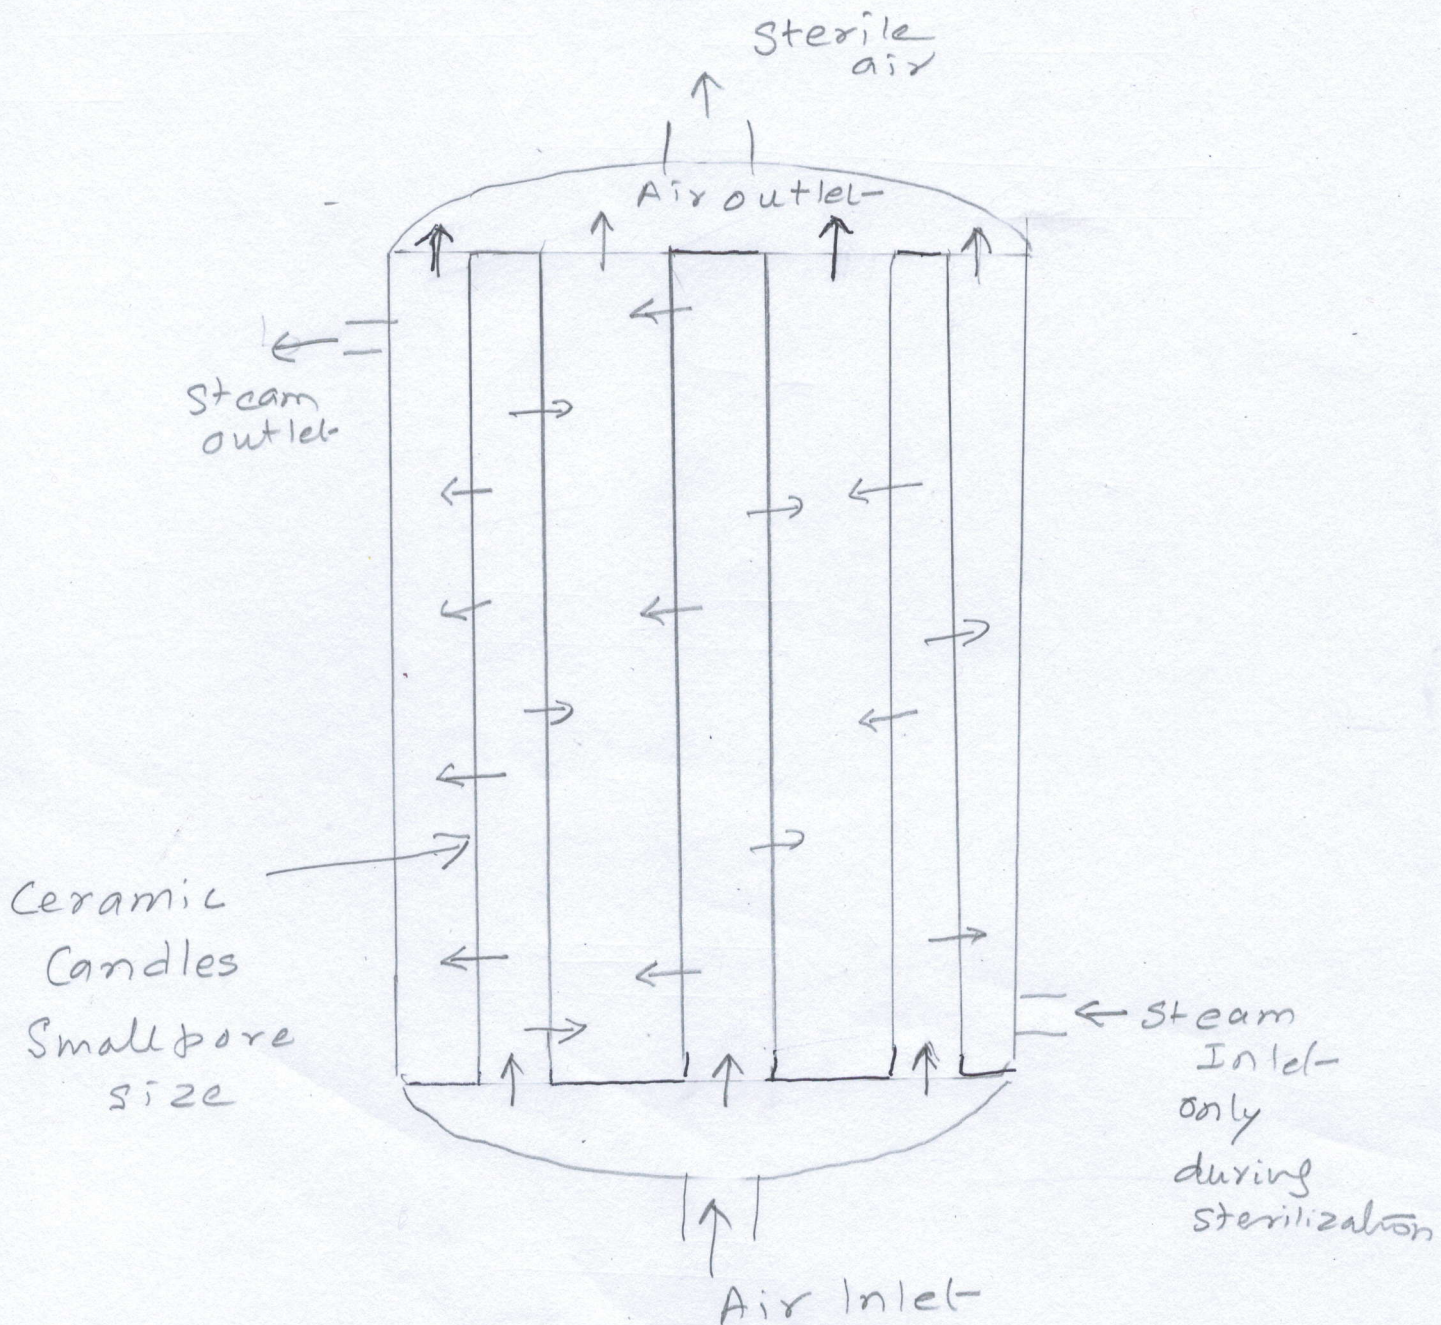 Sterile
air
Air outlet
Steam
outlet
Ceramic
Candles
Small pore
size
Steam
Inlet
only
during
sterilization
Air Inlet